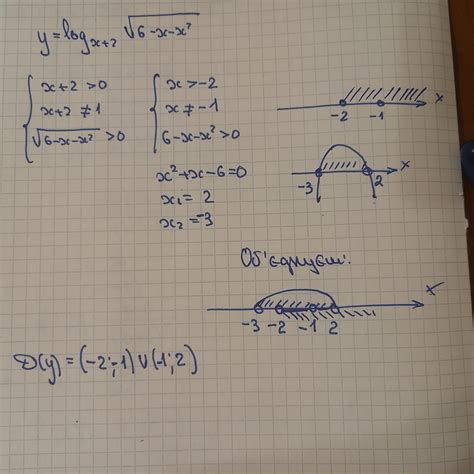 y = log_{x+2} √(6-x-x²)
{ x+2 > 0 { x > -2
x+2 ≠ 1 x ≠ -1
√(6-x-x²) > 0 6-x-x² > 0
-2 -1 x
x²+x-6=0
x₁ = 2
x₂ = -3
-3 2 x
Об'єднуєм:
-3 -2 -1 2 x
D(y) = (-2;-1) ∪ (-1;2)